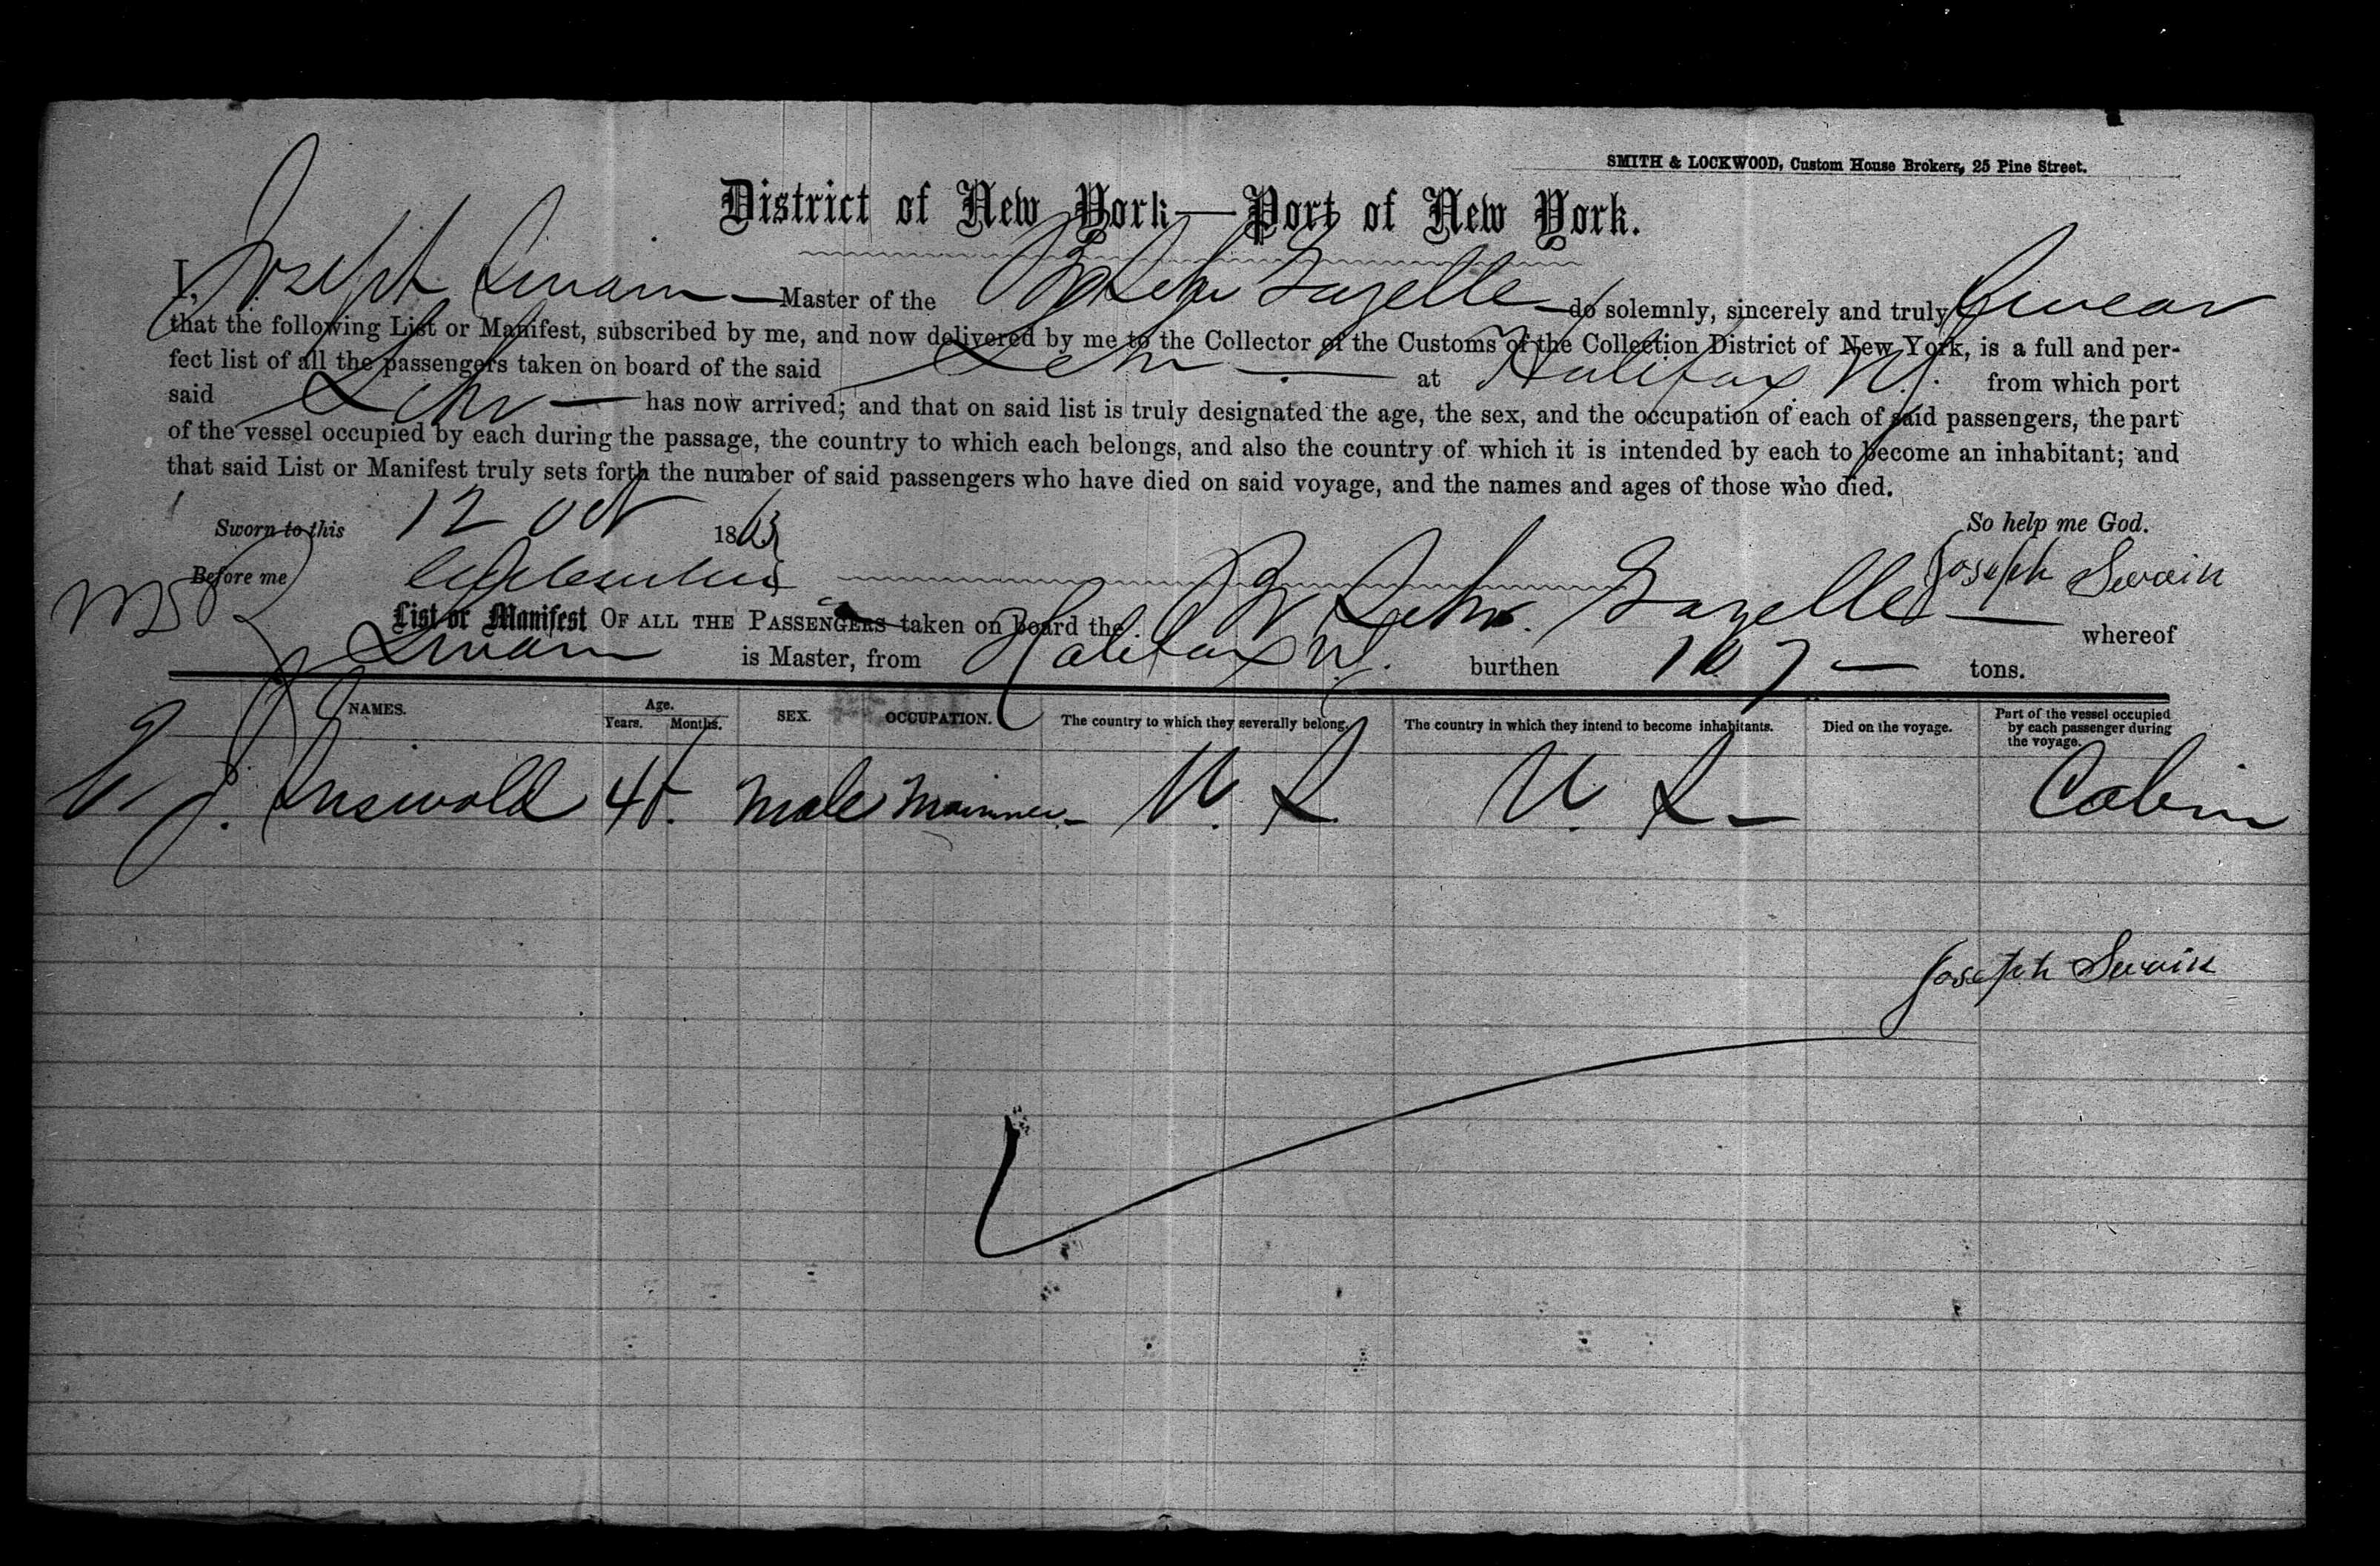 SMITH & LOCKWOOD, Custom House Brokers, 25 Pine Street.
District of New York—Port of New York.
I, Joseph Swain — Master of the Br Schr Gazelle — do solemnly, sincerely and truly Swear
that the following List or Manifest, subscribed by me, and now delivered by me to the Collector of the Customs of the Collection District of New York, is a full and per-
fect list of all the passengers taken on board of the said Schr — at Halifax N.S. from which port
said Schr — has now arrived; and that on said list is truly designated the age, the sex, and the occupation of each of said passengers, the part
of the vessel occupied by each during the passage, the country to which each belongs, and also the country of which it is intended by each to become an inhabitant; and
that said List or Manifest truly sets forth the number of said passengers who have died on said voyage, and the names and ages of those who died.
Sworn to this 12 Oct 1863 So help me God.
Before me Joseph Swain
List or Manifest OF ALL THE PASSENGERS taken on board the Br Schr. Gazelle — whereof
Swain is Master, from Halifax N.S. burthen 107 — tons.
NAMES. Age. Years. Months. SEX. OCCUPATION. The country to which they severally belong. The country in which they intend to become inhabitants. Died on the voyage. Part of the vessel occupied by each passenger during the voyage.
J. Griswold Male Mariner — U. S. U. S — Cabin
Joseph Swain